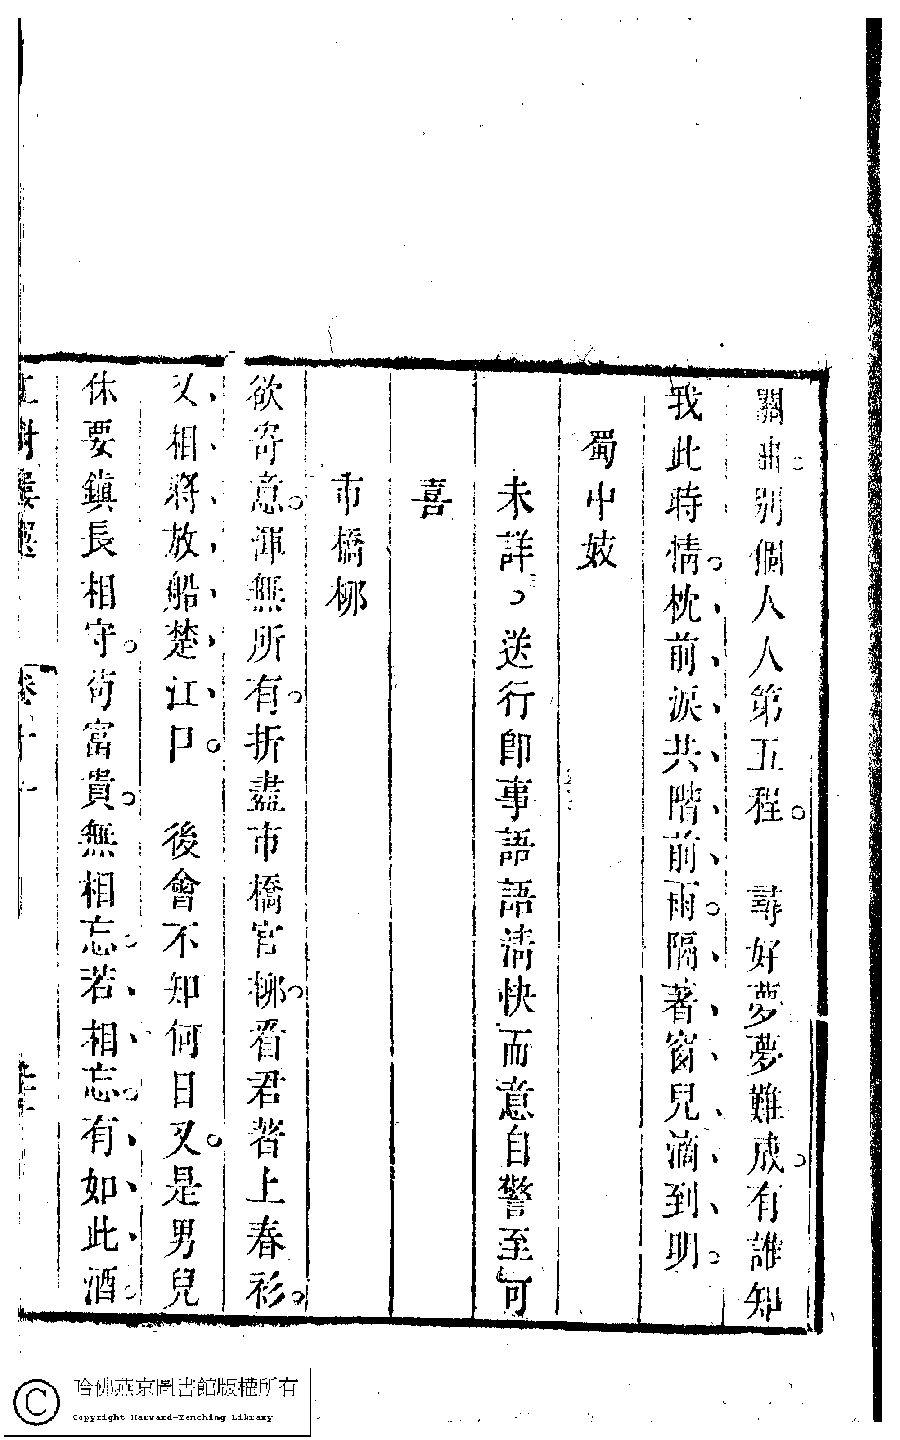 關曲。別個人人第五程。　尋好夢夢難成。有誰知
我此時情。枕前淚共階前雨。隔著窗兒滴到明。
蜀中妓
未詳。送行卽事語語清快而意自警至可
喜
市橋柳
欲寄意。渾無所有。折盡市橋官柳。看君著上春衫。
又相將放船楚江口。　後會不知何日又。是男兒
休要鎮長相守。苟富貴。無相忘。若相忘。有如此酒。
卷十一
哈佛燕京圖書館版權所有
Copyright Harvard-Yenching Library